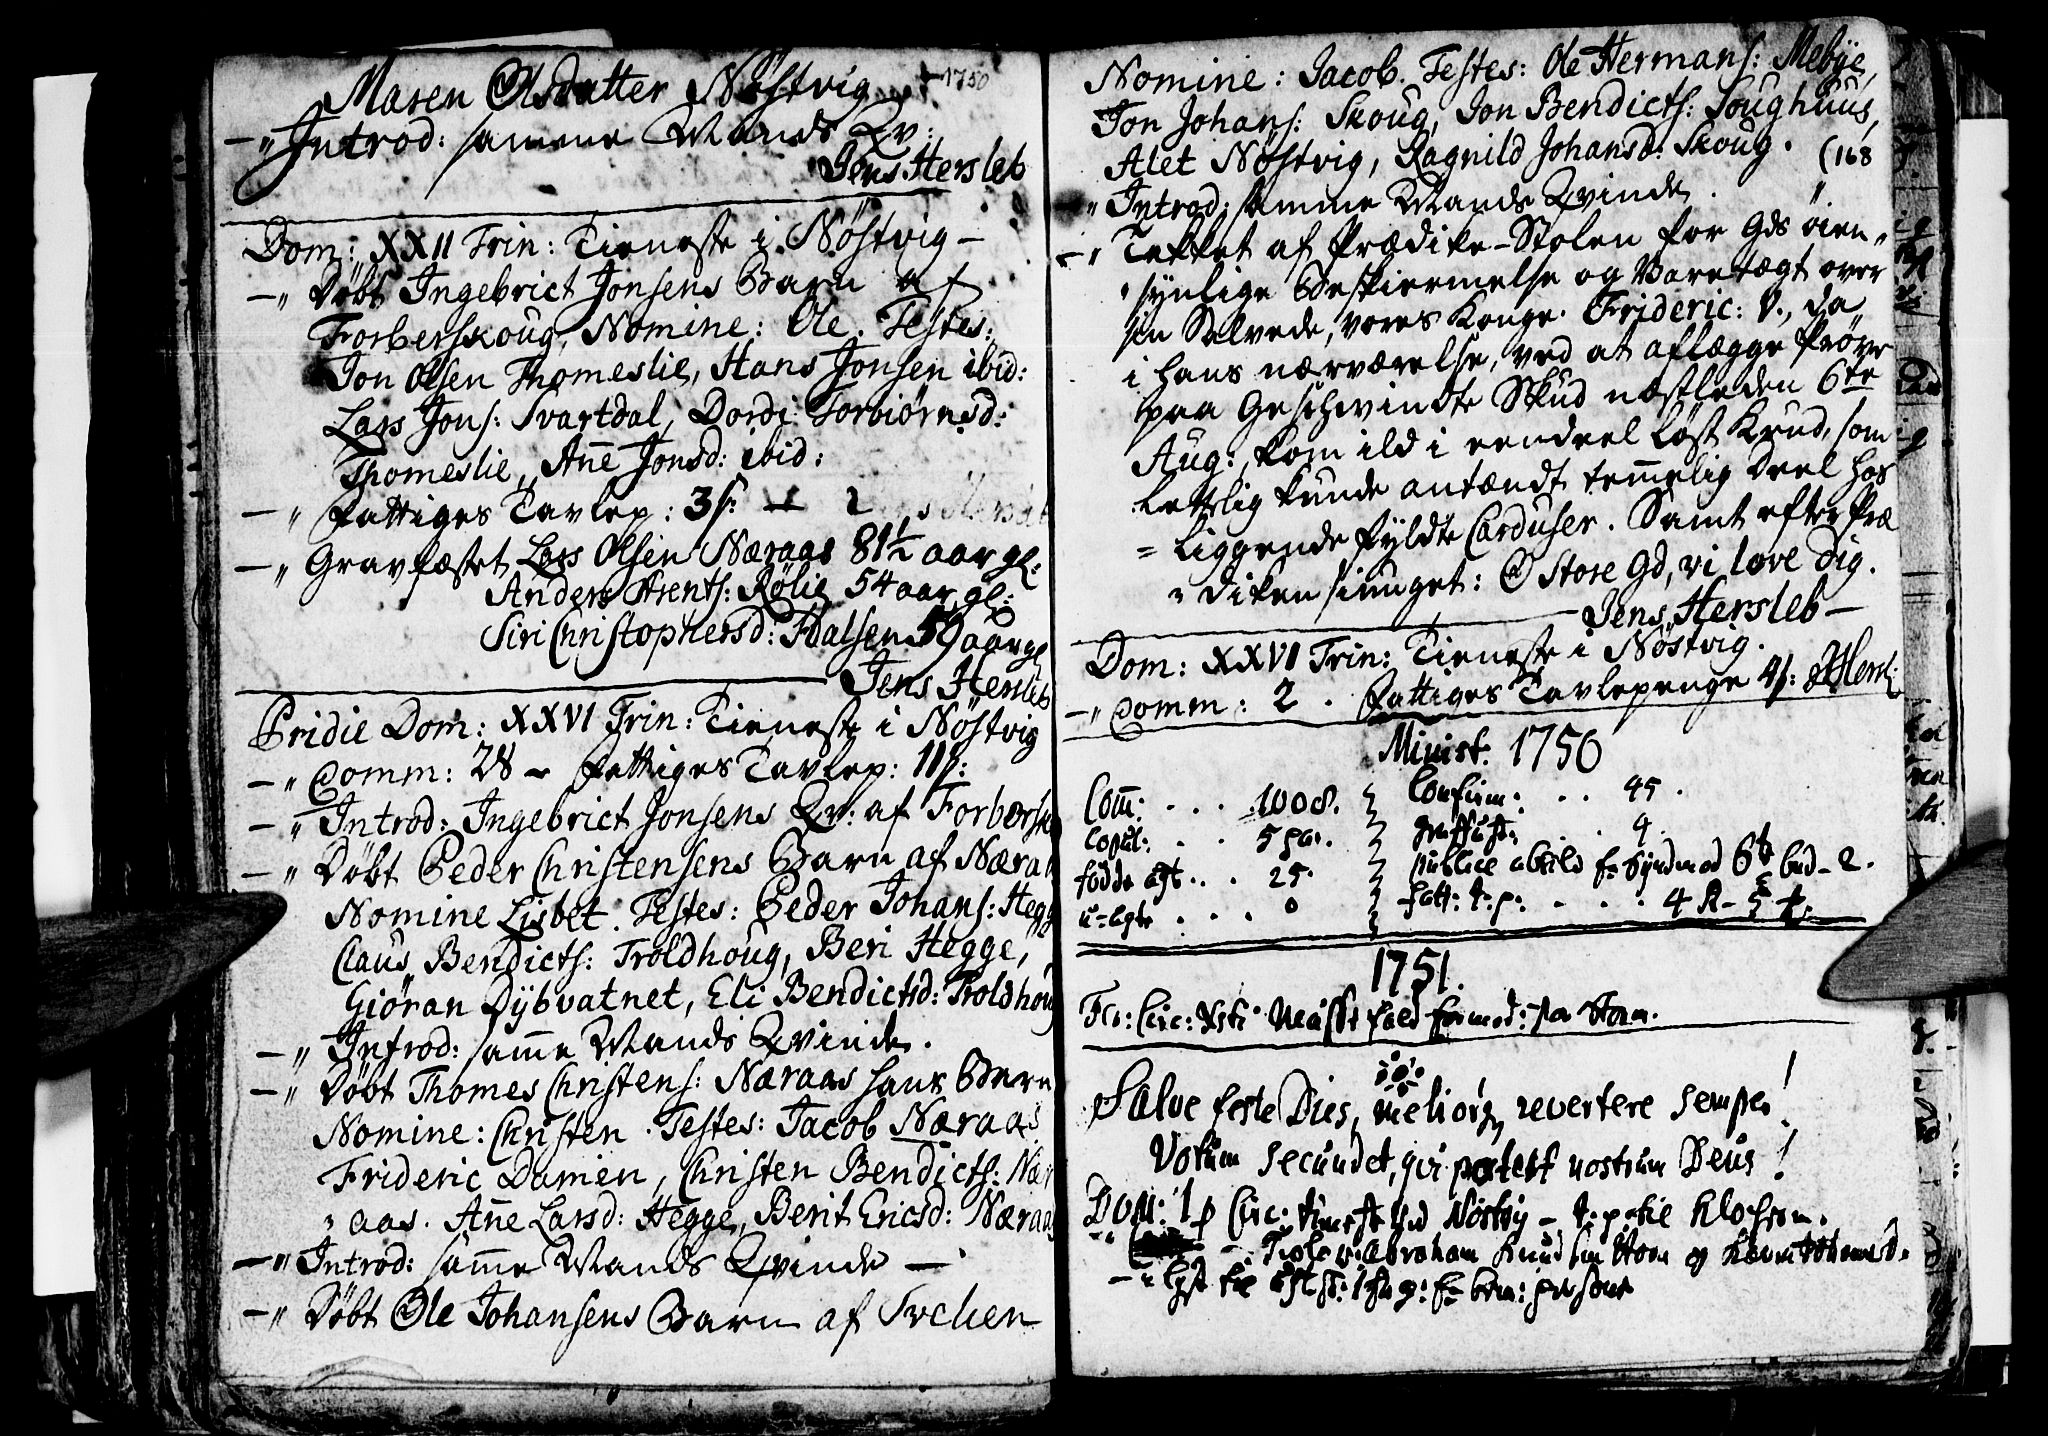 1750
Maren Olsdatter Nöstvig
—" Introd: samme Mands Qv:
Jens Hersleb
Dom: XXII Trin: Tieneste i Nöstvig —
—" Döbt Ingebrict Jonsens Barn af
Forberskoug, Nomine: Ole. Testes:
Jon Olsen Thomeslie, Hans Jonsen ibid:
Lars Jons: Svartdal, Dordi Torbiörnsd:
Thomeslie, Añe Jonsd: ibid:
—" Fattiges Tavlep: 3 ß:
—" Gravfæstet Lars Olsen Næraas 81½ aar gl:
Anders Arents: Rölie 54 aar gl:
Siri Christophersd: Fdalsen 59 aar gl
Jens Hersleb
Pridie Dom: XXVI Trin: Tieneste i Nöstvig
—" Comm: 28 — Fattiges Tavlep: 11 ß:
—" Introd: Ingebrict Jonsens Qv: af Forbersk
—" Döbt Peder Christensens Barn af Næra
Nomine Lisbet. Testes: Peder Johans: Hegg
Claus Bendicts: Troldhoug, Beri Hegge,
Giöran Dÿbvatnet, Eli Bendictsd: Troldhoug
—" Introd: sam̃e Mands Qvinde.
—" Döbt Thomes Christens: Næraas hans Barn
Nomine: Christen. Testes: Jacob Næraas
Frideric Damien, Christen Bendicts: Nær
" aas. Añe Larsd: Hegge, Berit Ericsd: Næraas
—" Introd: sam̃e Mands Qvinde —
—" Döbt Ole Johansens Barn af Svehen
Nomine: Jacob. Testes: Ole Hermans: Mebÿe,
Jon Johans: Skoug, Jon Bendicts: Soughuus,
Alet Nöstvig, Ragnild Johansd: Skoug. (168
" Introd: samme Mands Qvinde.
—" Takket af Prædike-Stolen for Gds öien"
" synlige Beskiermelse og Varetægt over
sin Salvede, vores Konge. Frideric: V., da
i hans nærværelse, ved at aflægge Pröve
paa Geschwindte Skud næstleden 6te
Aug:, kom ild i eendeel löst Krud, som
lettelig kunde antændt tem̃elig deel hos
= liggende fyldte Carduser. Samt efter Præ
= diken siunget: O Store Gd, vi love Dig.
Jens Hersleb —
Dom: XXVI Trin: Tieneste i Nöstvig.
—" Comm: 2. Fattiges Tavlepenge 4 ß: JHersl:
Minist: 1750
Com̃: . . . 1008. Confirm: . . 45.
Copul: . . 5 par. . 4.
födde . . . 25. publice absolv . 6te bud – 2.
u-egte . . . 0 fatt: t: p: . . . 4
1751.
Fer: Circ: Xsti Messe fald
Salve feste Dies, meliorq revertere semper!
Votum secundet, qvi potest nostrum Deus!
Dom: 1 p Circ: tieneste ved Nöstvig —
—" Abraham Knudsen
—"